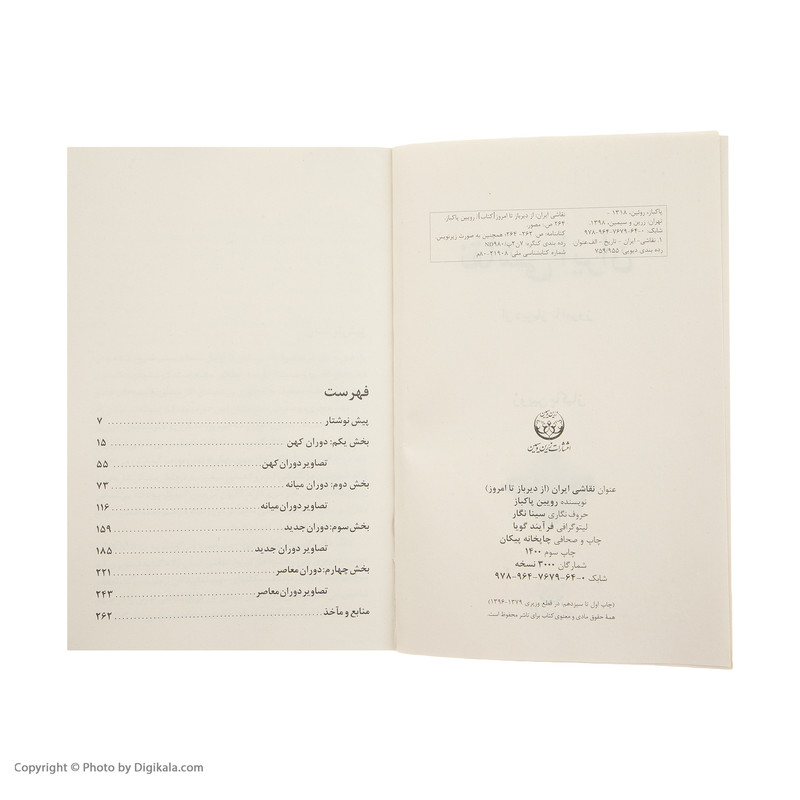 پاکباز، رویین، ۱۳۱۸ -
نقاشی ایران: از دیرباز تا امروز [کتاب]: رویین پاکباز.
تهران: زرین و سیمین، ۱۳۹۸.
۲۶۴ ص.: مصور.
شابک: ۰-۶۴-۷۶۷۹-۹۶۴-۹۷۸
کتابنامه: ص. ۲۶۲-۲۶۴؛ همچنین به صورت زیرنویس.
۱. نقاشی - ایران - تاریخ - الف.عنوان.
رده بندی کنگره: ND۹۸۰/
رده بندی دیویی: ۷۵۹/۹۵۵
شماره کتابشناسی ملی: ۳۱۹۰۸-۸۰م
انتشارات زرین و سیمین
عنوان نقاشی ایران (از دیرباز تا امروز)
نویسنده رویین پاکباز
حروف نگاری سینا نگار
لیتوگرافی فرآیند گویا
چاپ و صحافی چاپخانه پیکان
چاپ سوم ۱۴۰۰
شمارگان ۳۰۰۰ نسخه
شابک ۰-۶۴-۷۶۷۹-۹۶۴-۹۷۸
(چاپ اول تا سیزدهم، در قطع وزیری ۱۳۷۹-۱۳۹۶)
همهٔ حقوق مادی و معنوی کتاب برای ناشر محفوظ است.
فهرست
پیش نوشتار ۷
بخش یکم: دوران کهن ۱۵
تصاویر دوران کهن ۵۵
بخش دوم: دوران میانه ۷۳
تصاویر دوران میانه ۱۱۶
بخش سوم: دوران جدید ۱۵۹
تصاویر دوران جدید ۱۸۵
بخش چهارم: دوران معاصر ۲۲۱
تصاویر دوران معاصر ۲۴۳
منابع و مآخذ ۲۶۲
Copyright © Photo by Digikala.com